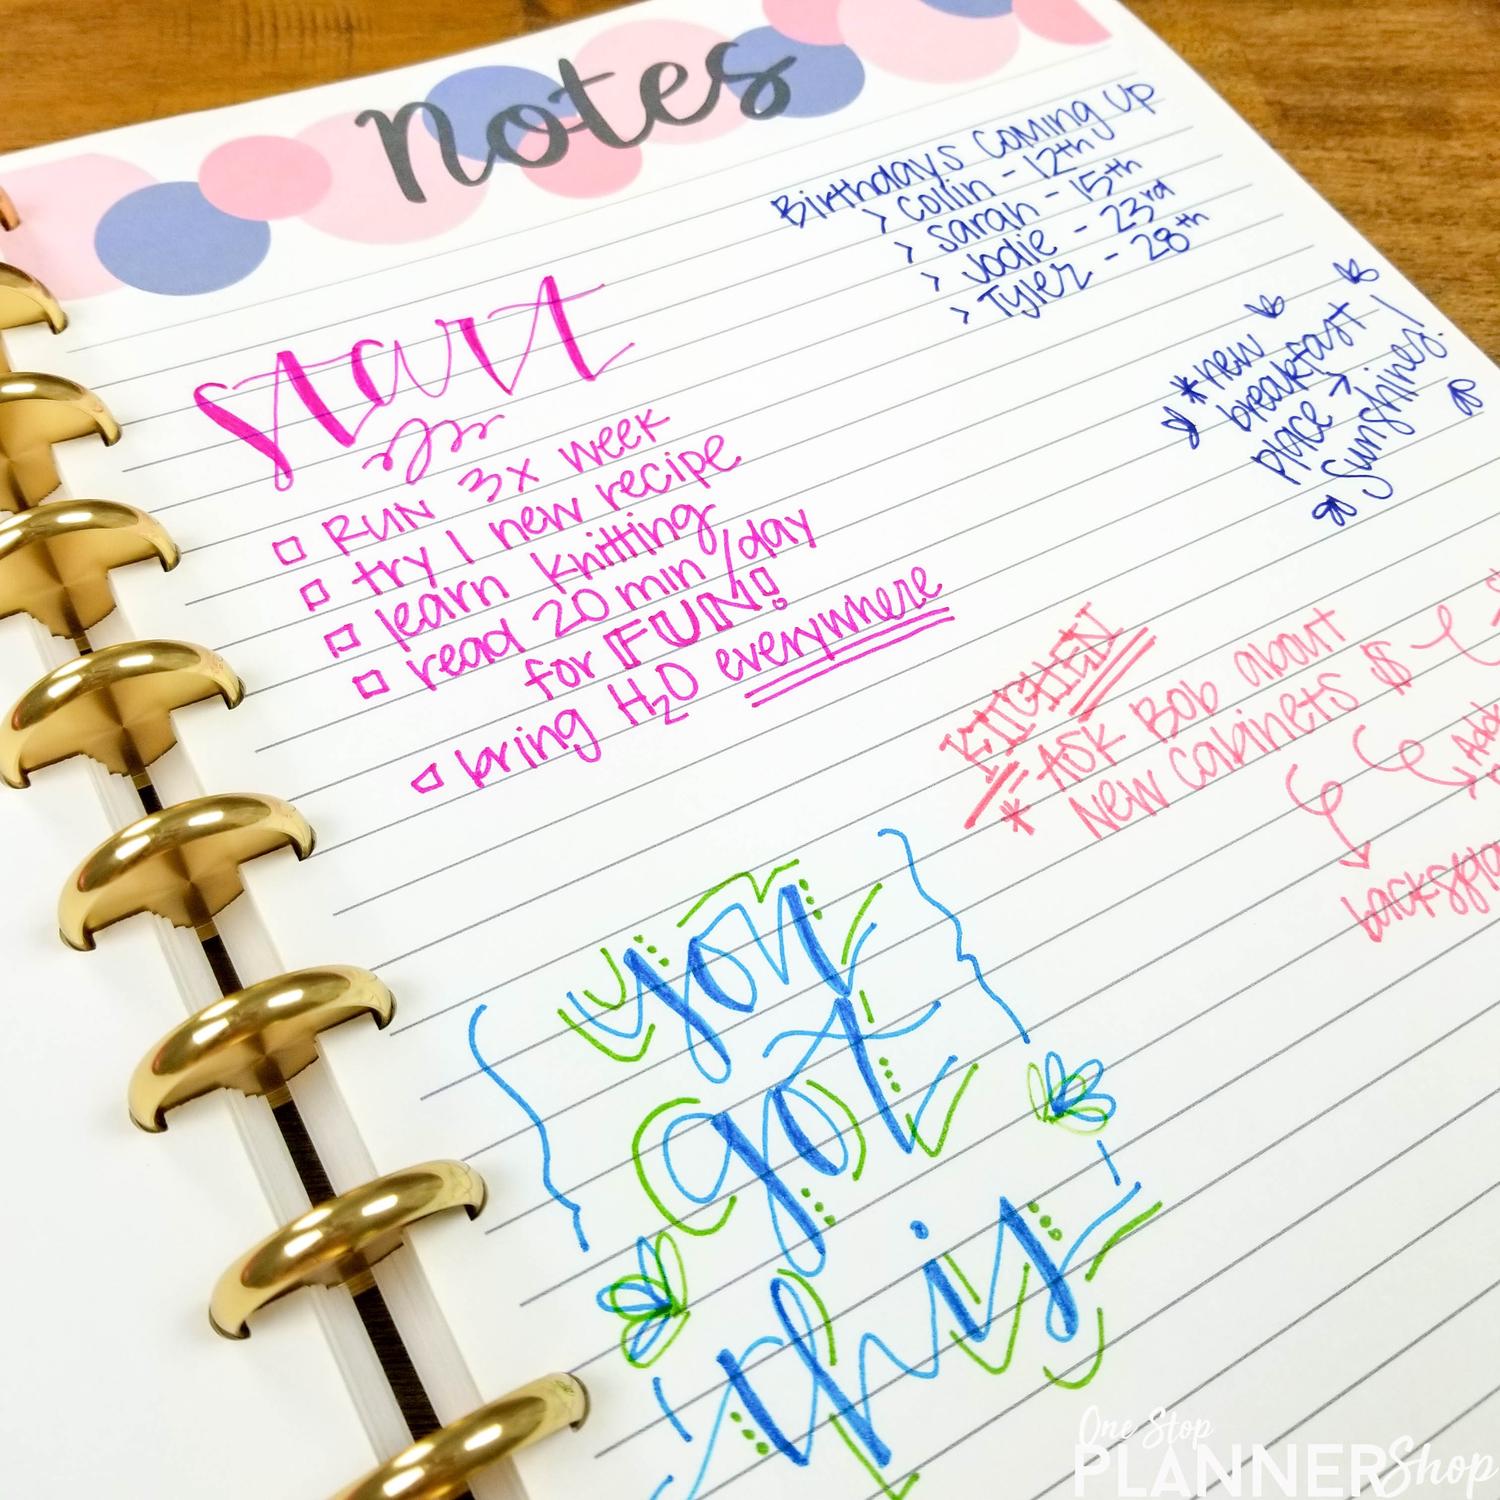 Notes
Birthdays coming up
> Collin - 12th
> Sarah - 15th
> Jodie - 23rd
> Tyler - 28th
*new
breakfast
place >
Sunshines!
start
RUN 3x week
try 1 new recipe
learn knitting
read 20 min/day
for FUN!
bring H2O everywhere
KITCHEN
* Ask Bob about
new cabinets $
you
got
this
One Stop
PLANNERShop